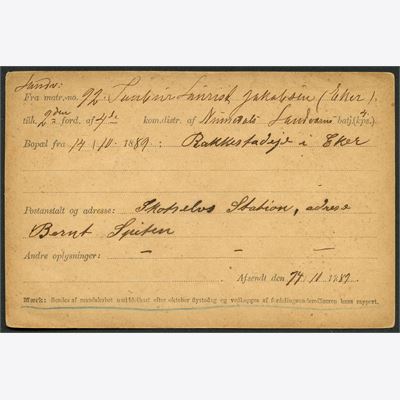 Landv:
Fra matr.-no. 92 Tambur Lauritz Jakobsen (Eker).
tilh. 2den ford. af 4de kom.distr. af Numedals Landværns batj. (4 kps.)
Bopæl fra 14/10 1889: Rakkestadeje i Eker
Postanstalt og adresse: Skotselvs Station, adrese
Bernt
Andre oplysninger: — — —
Afsendt den 14/10 1889.
Mærk: Sendes af mandskabet umiddelbart efter oktober dystedag og vedlægges af fordelingsunderofficeren hans rapport.